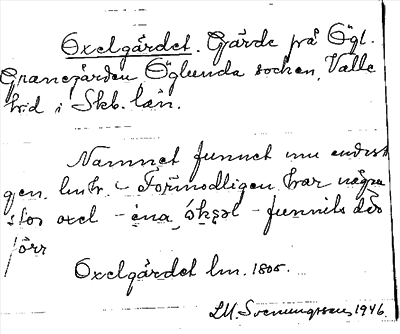 Oxelgärdet. Gärde på Ögl.
Granegården Öglunda socken, Valle
hrd i Skb. län.
Namnet funnet nu endast
gen. lmhr. – Förmodligen har några
stor oxel – funnits där
förr
Oxelgärdet lm. 1805.
LM. Svenungsson 1946